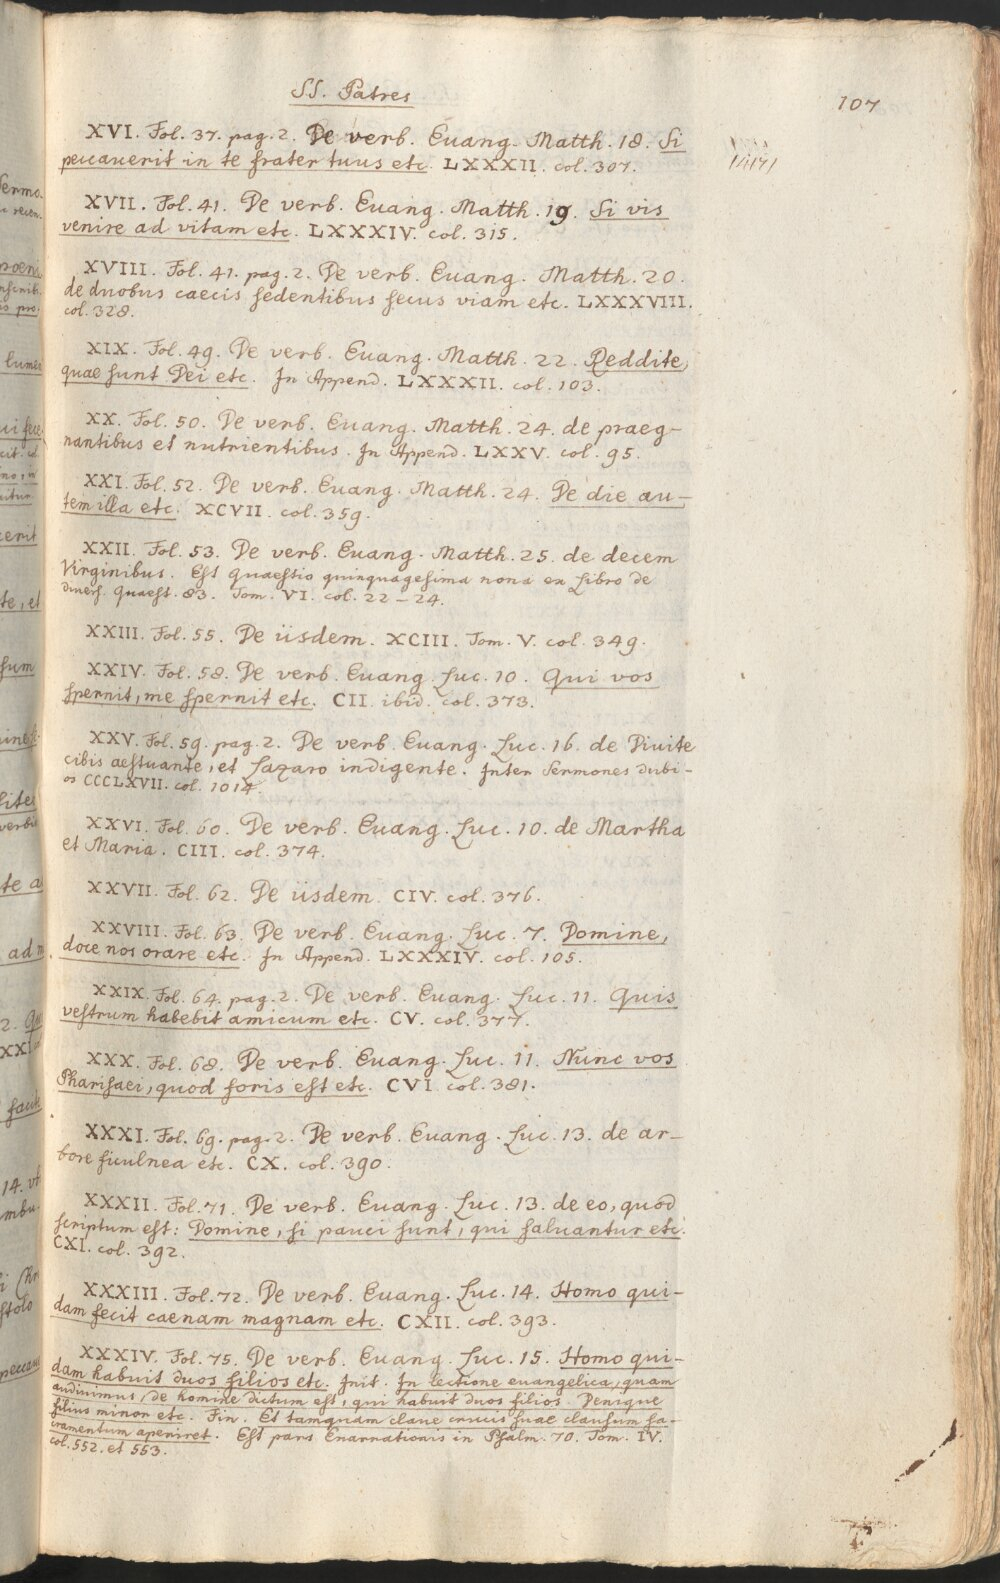 SS. Patres
107
XVI. Fol. 37. pag. 2. De verb. Euang. Matth. 18. Si
peccauerit in te frater tuus etc. LXXXII. col. 307.
XVII. Fol. 41. De verb. Euang. Matth. 19. Si vis
venire ad vitam etc. LXXXIV. col. 315.
XVIII. Fol. 41. pag. 2. De verb. Euang. Matth. 20.
de duobus caecis sedentibus secus viam etc. LXXXVIII.
col. 328.
XIX. Fol. 49. De verb. Euang. Matth. 22. Reddite,
quae sunt Dei etc. In Append. LXXXII. col. 103.
XX. Fol. 50. De verb. Euang. Matth. 24. de praeg-
nantibus et nutrientibus. In Append. LXXV. col. 95.
XXI. Fol. 52. De verb. Euang. Matth. 24. De die au-
tem illa etc. XCVII. col. 359.
XXII. Fol. 53. De verb. Euang. Matth. 25. de decem
Virginibus. Est quaestio quinquagesima nona ex Libro de
diuers. quaest. 83. Tom. VI. col. 22-24.
XXIII. Fol. 55. De iisdem. XCIII. Tom. V. col. 349.
XXIV. Fol. 58. De verb. Euang. Luc. 10. Qui vos
spernit, me spernit etc. CII. ibid. col. 373.
XXV. Fol. 59. pag. 2. De verb. Euang. Luc. 16. de Diuite
cibis aestuante, et Lazaro indigente. Inter Sermones dubi-
os CCCLXVII. col. 1014.
XXVI. Fol. 60. De verb. Euang. Luc. 10. de Martha
et Maria. CIII. col. 374.
XXVII. Fol. 62. De iisdem. CIV. col. 376.
XXVIII. Fol. 63. De verb. Euang. Luc. 7. Domine,
doce nos orare etc. In Append. LXXXIV. col. 105.
XXIX. Fol. 64. pag. 2. De verb. Euang. Luc. 11. Quis
vestrum habebit amicum etc. CV. col. 377.
XXX. Fol. 68. De verb. Euang. Luc. 11. Nunc vos
Pharisaei, quod foris est etc. CVI. col. 381.
XXXI. Fol. 69. pag. 2. De verb. Euang. Luc. 13. de ar-
bore ficulnea etc. CX. col. 390.
XXXII. Fol. 71. De verb. Euang. Luc. 13. de eo, quod
scriptum est: Domine, si pauci sunt, qui saluantur etc.
CXI. col. 392.
XXXIII. Fol. 72. De verb. Euang. Luc. 14. Homo qui-
dam fecit caenam magnam etc. CXII. col. 393.
XXXIV. Fol. 75. De verb. Euang. Luc. 15. Homo qui-
dam habuit duos filios etc. Init. In lectione euangelica, quam
audiuimus, de homine dictum est, qui habuit duos filios. Denique
filius minor etc. Fin. Et tamquam claue crucis suae clausum sa-
cramentum aperiret. Est pars Enarrationis in Psalm. 70. Tom. IV.
col. 552. et 553.